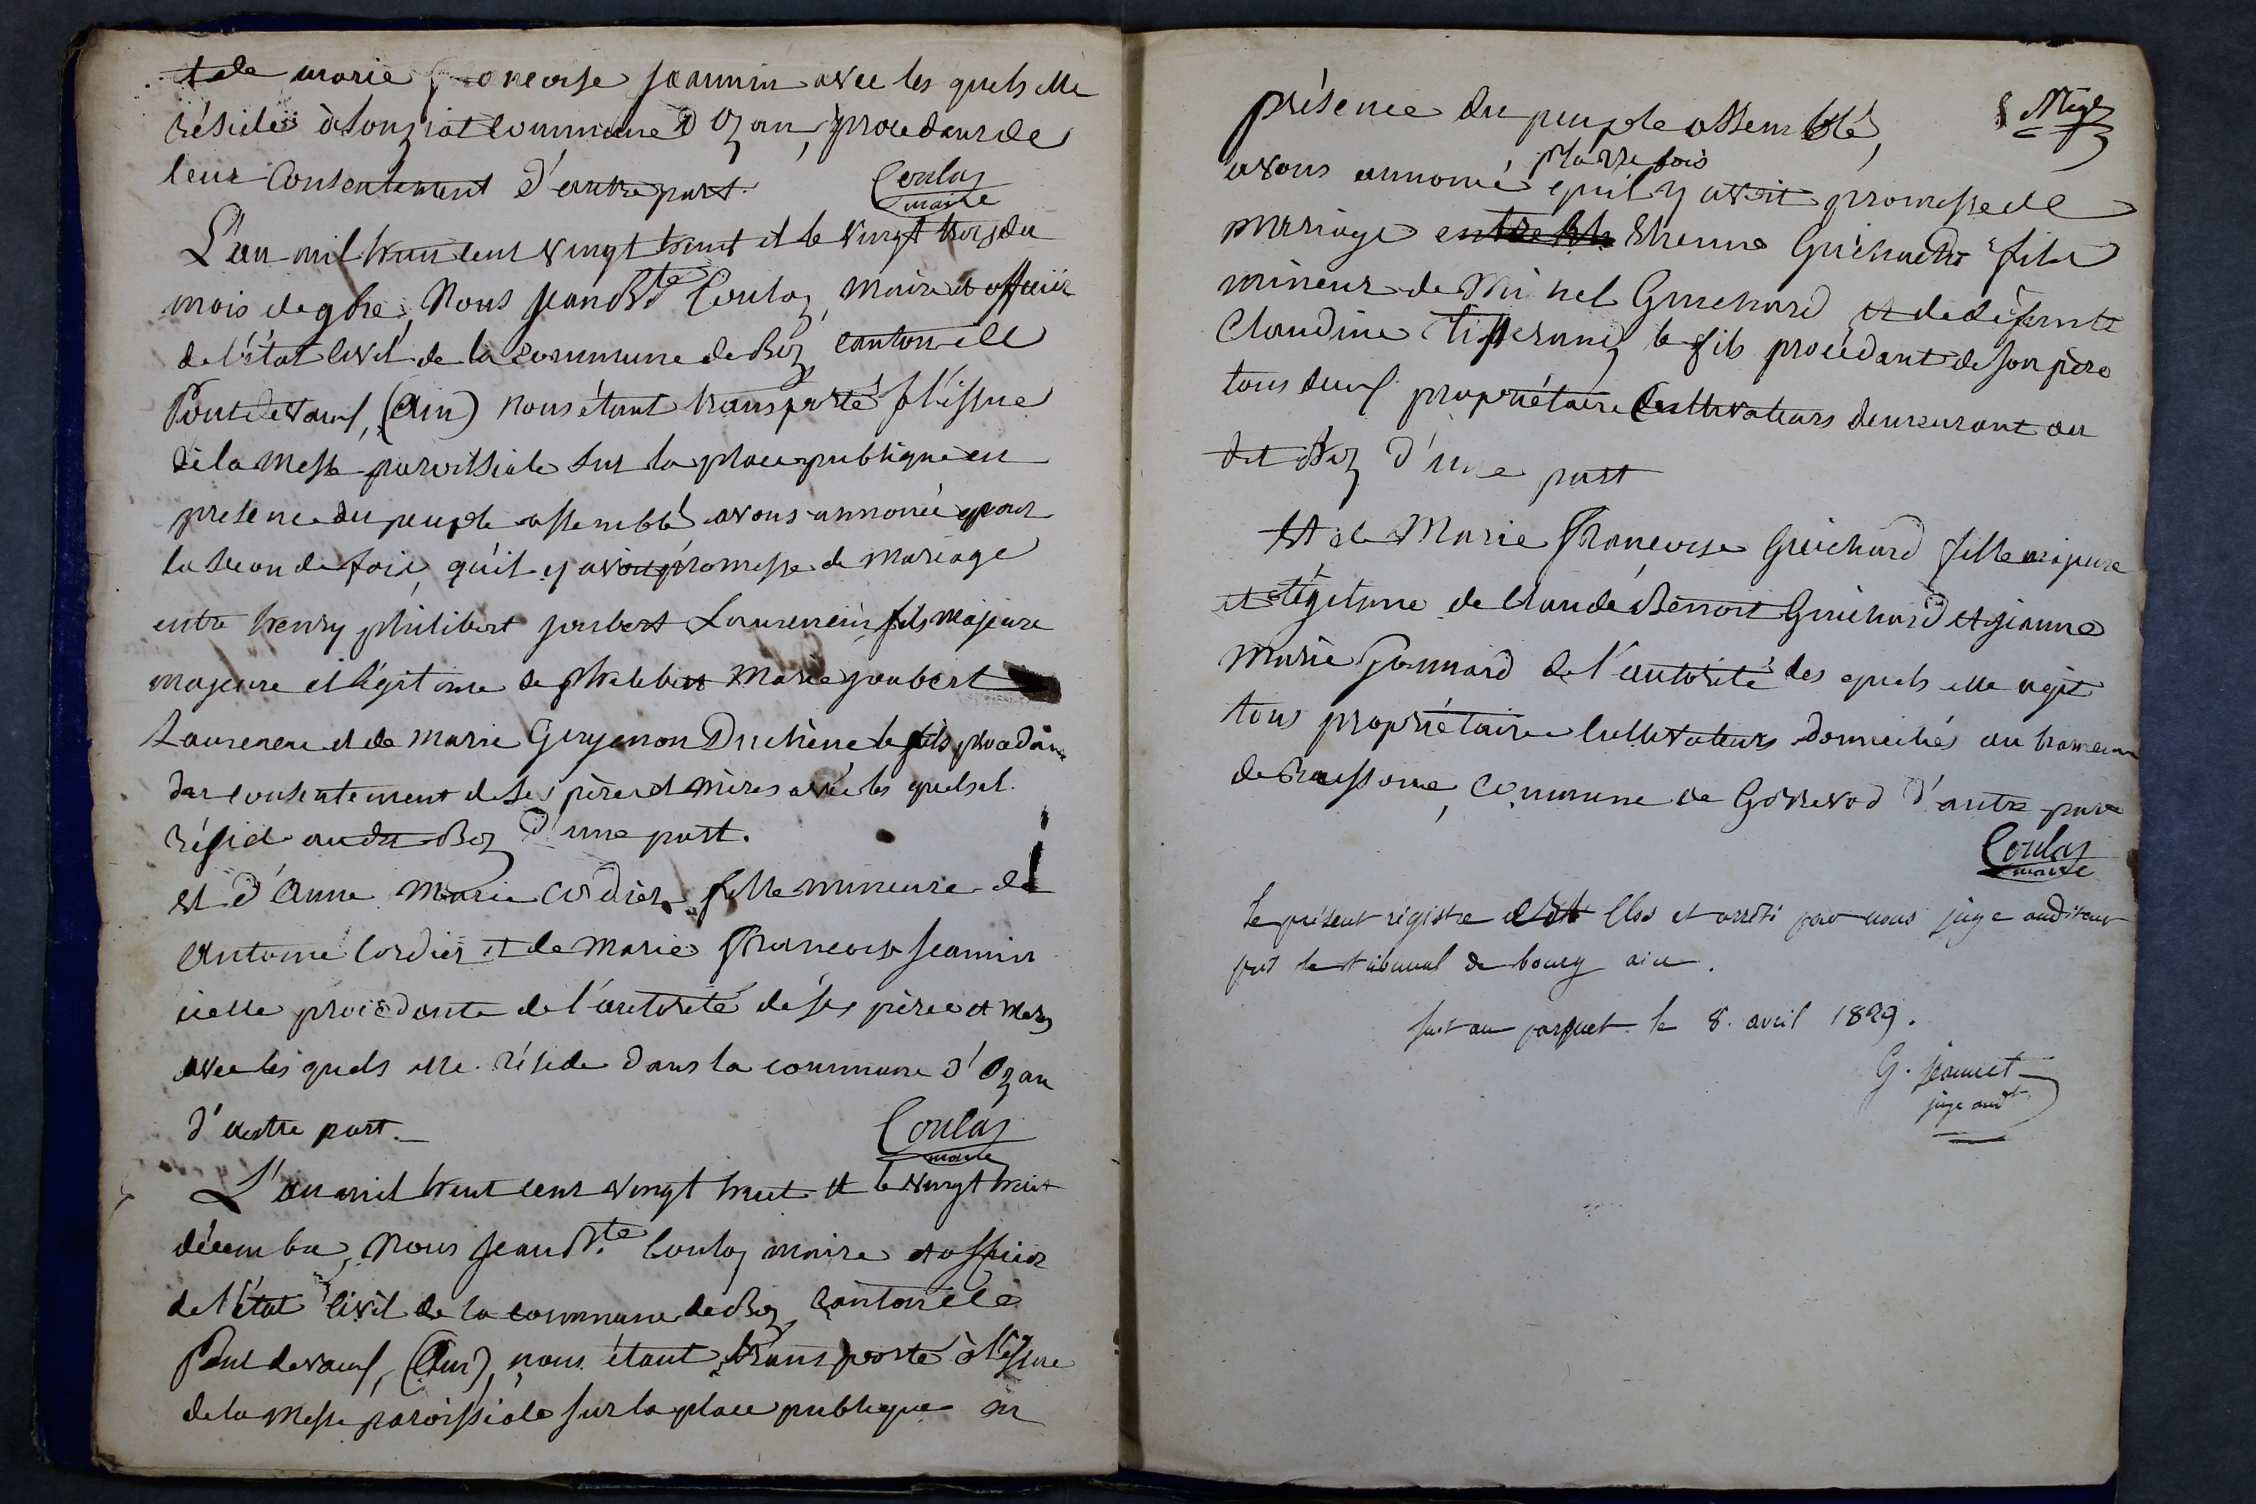 et de marie francoise jeannin avec les quels elle
réside à Sonziat commune d'Ozan, procedant de
leur Consentement d'autre part.
Coulas
maire
L'an mil huit cent vingt huit et le vingt trois du
mois de 9bre, Nous Jean Bte Coulas, maire et officier
de l'état civil de la commune de Boz canton de
Pont devaux, (Ain) nous étant transporté à l'issue
de la messe paroissiale sur la place publique en
presence du peuple assemblé avons annoncé pour
la seconde fois, qu'il y avoit promesse de mariage
entre henry philibert joubert Laurencin fils majeure
majeure et légitime de philibert Marie joubert
Laurencin et de marie Duchène le fils procédant
du consentement de ses père et mères avec les quels il
réside au dit Boz d'une part.
et d'anne Marie Cordier fille mineure de
Antoine Cordier et de Marie francoise Jeannin
icelle procédante de l'autorité de ses père et mere
avec les quels elle réside dans la commune d'Ozan
d'autre part.
Coulas
maire
L'an mil huit cent vingt huit et le vingt huit
décembre, Nous Jean Bte Coulas maire et officier
de l'état civil de la commune de Boz, canton de
Pont devaux, (Ain), nous étant transporté à l'issue
de la messe paroissiale sur la place publique en
présence du peuple assemblé,
pr la 1re fois
avons annoncé qu'il y avoit promesse de
mariage entre Etienne Guichard fils
mineur de Michel Guichard et de défunte
Claudine Tisserand le fils procédant de son père
tous deux propriétaire Cultivateurs demeurant au
dit Boz d'une part
et de Marie Francoise Guichard fille majeure
et légitime de Claude Benoit Guichard et jeanne
Marie Gonnard de l'autorité des quels elle agit
tous propriétaire cultivateurs domiciliés au hameau
de commune de Gorrevod d'autre part
Coulas
maire
Le présent régistre clos et arrêté par nous juge auditeur
près le tribunal de bourg ain.
fait au parquet le 8. avril 1829.
G. jeannet
juge audt